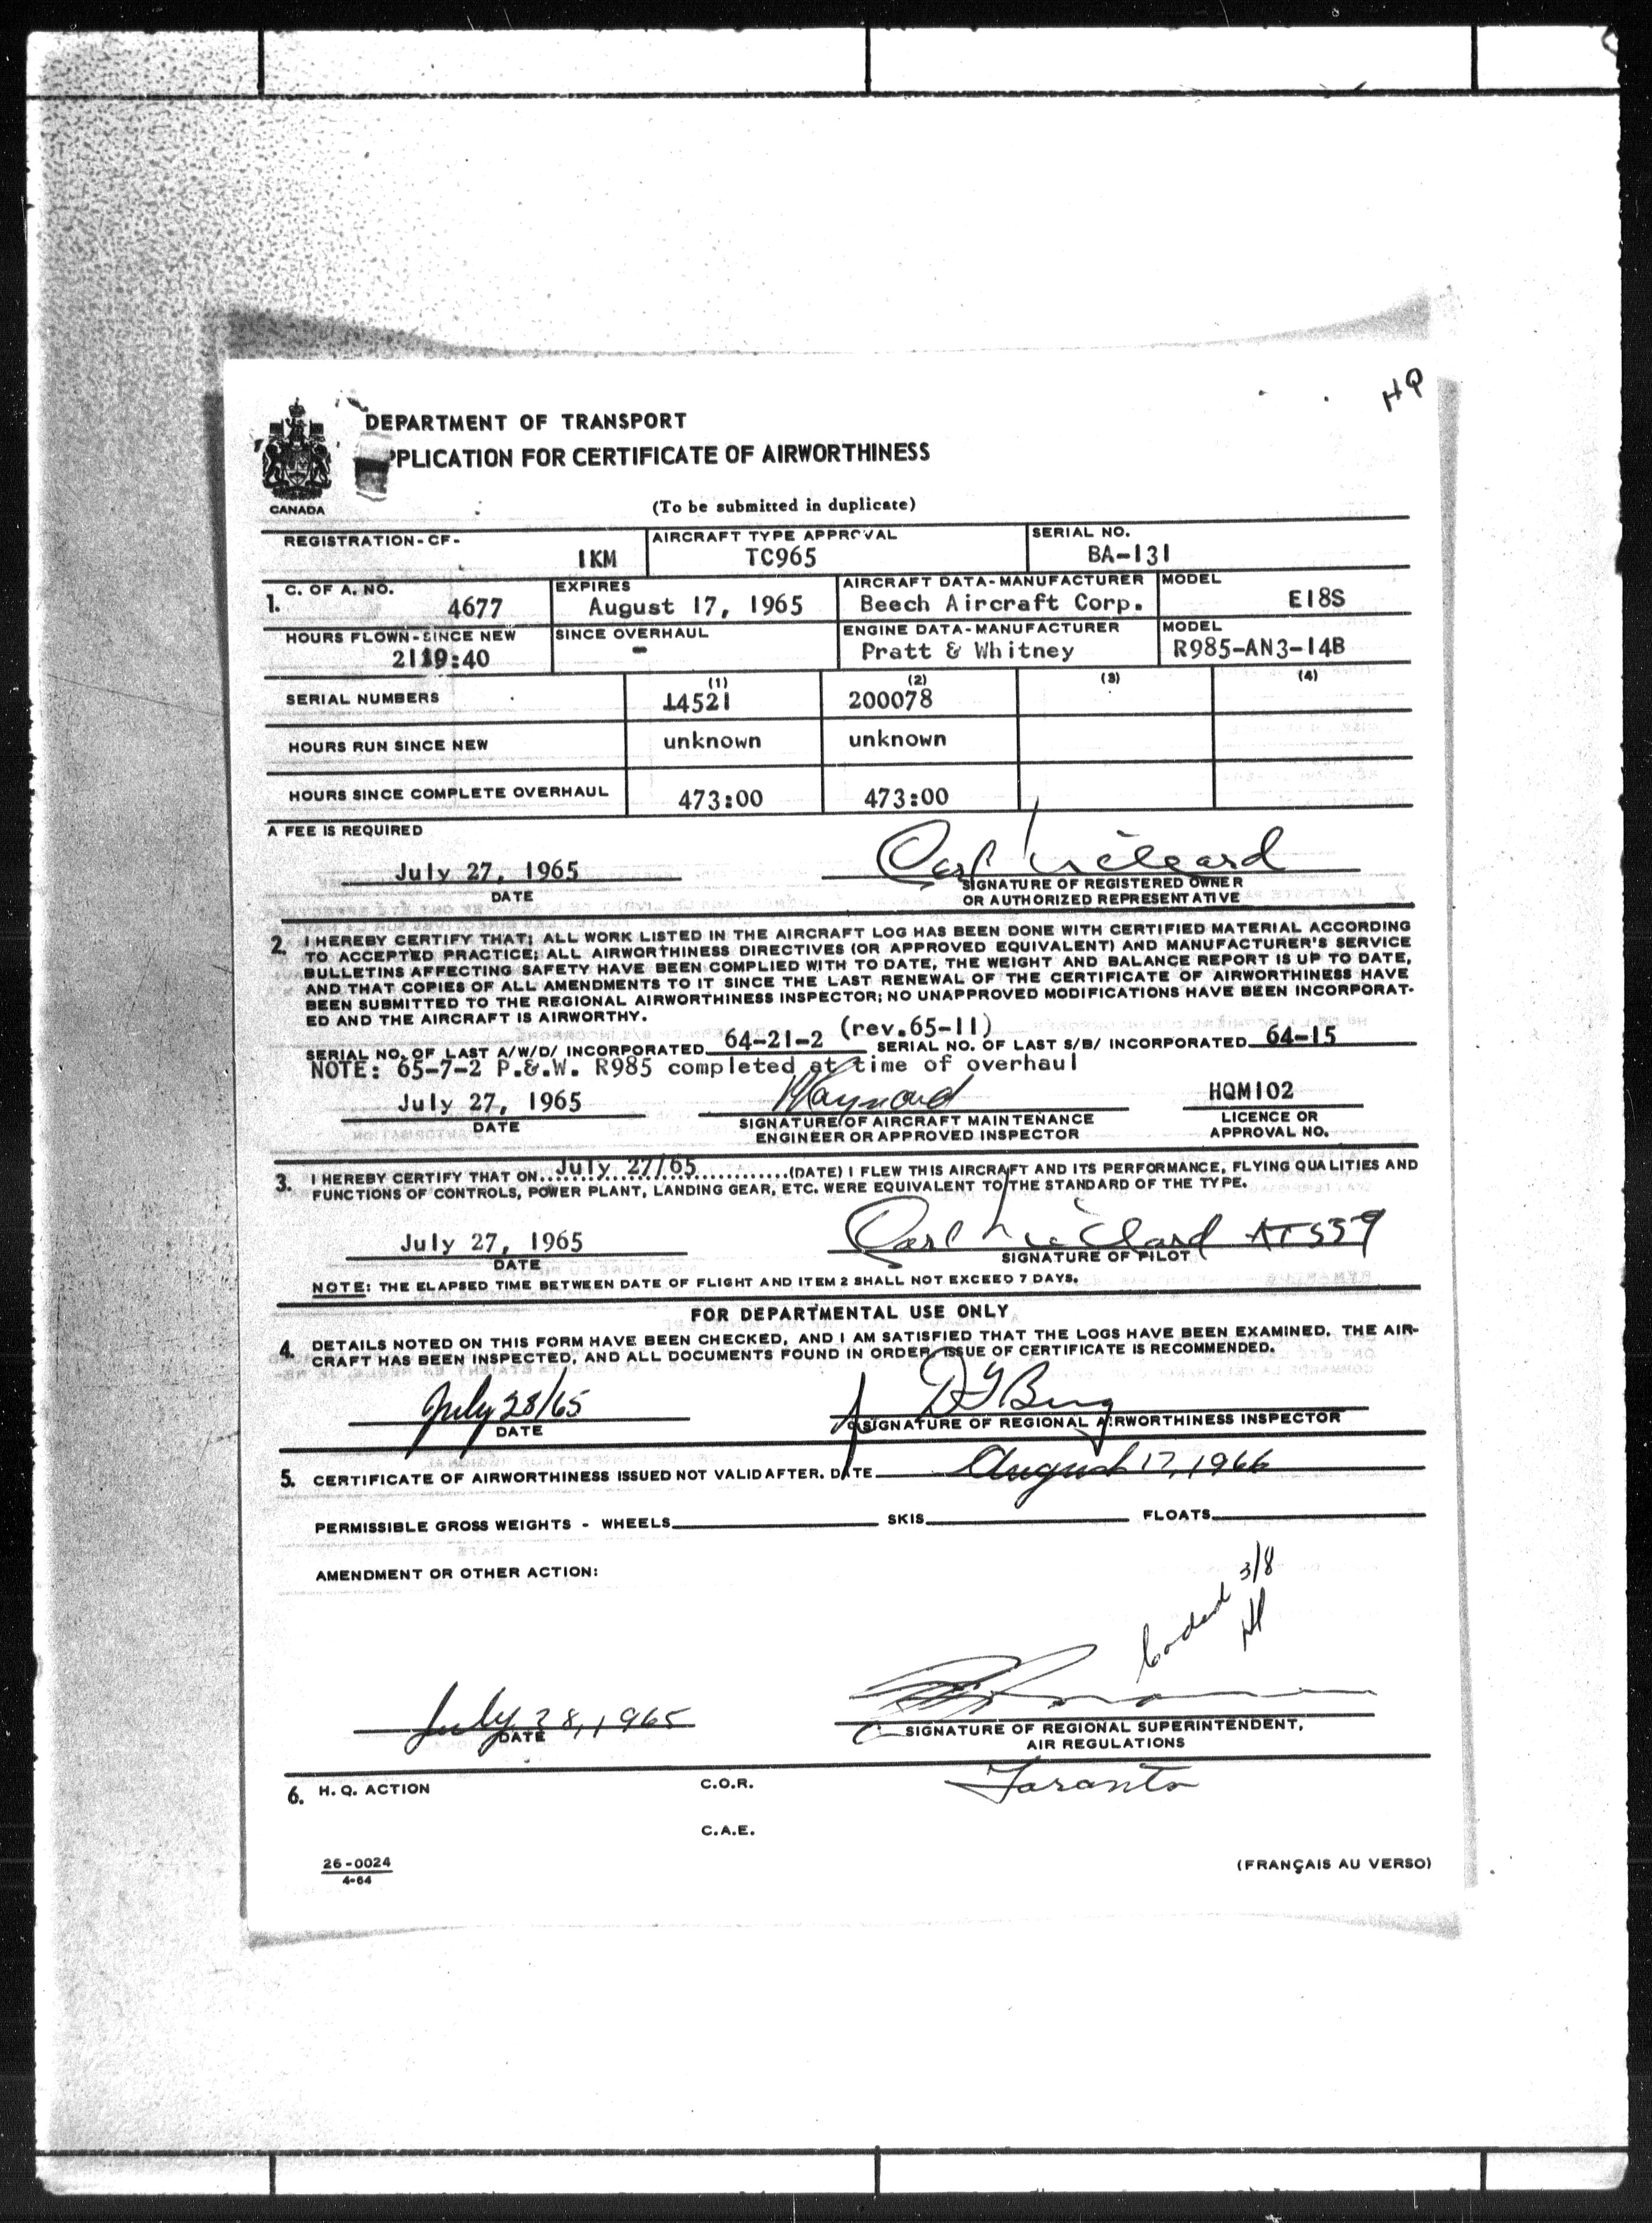 HP
DEPARTMENT OF TRANSPORT
PPLICATION FOR CERTIFICATE OF AIRWORTHINESS
CANADA
(To be submitted in duplicate)
REGISTRATION-CF- IKM AIRCRAFT TYPE APPROVAL TC965 SERIAL NO. BA-131
1. C. OF A. NO. 4677 EXPIRES August 17, 1965 AIRCRAFT DATA-MANUFACTURER Beech Aircraft Corp. MODEL E18S
HOURS FLOWN-SINCE NEW 2119:40 SINCE OVERHAUL - ENGINE DATA-MANUFACTURER Pratt & Whitney MODEL R985-AN3-14B
(1) (2) (3) (4)
SERIAL NUMBERS 14521 200078
HOURS RUN SINCE NEW unknown unknown
HOURS SINCE COMPLETE OVERHAUL 473:00 473:00
A FEE IS REQUIRED
July 27, 1965 Carl
DATE SIGNATURE OF REGISTERED OWNER
OR AUTHORIZED REPRESENTATIVE
2. I HEREBY CERTIFY THAT; ALL WORK LISTED IN THE AIRCRAFT LOG HAS BEEN DONE WITH CERTIFIED MATERIAL ACCORDING
TO ACCEPTED PRACTICE; ALL AIRWORTHINESS DIRECTIVES (OR APPROVED EQUIVALENT) AND MANUFACTURER'S SERVICE
BULLETINS AFFECTING SAFETY HAVE BEEN COMPLIED WITH TO DATE, THE WEIGHT AND BALANCE REPORT IS UP TO DATE,
AND THAT COPIES OF ALL AMENDMENTS TO IT SINCE THE LAST RENEWAL OF THE CERTIFICATE OF AIRWORTHINESS HAVE
BEEN SUBMITTED TO THE REGIONAL AIRWORTHINESS INSPECTOR; NO UNAPPROVED MODIFICATIONS HAVE BEEN INCORPORAT-
ED AND THE AIRCRAFT IS AIRWORTHY.
SERIAL NO. OF LAST A/W/D/ INCORPORATED 64-21-2 (rev.65-11) SERIAL NO. OF LAST S/B/ INCORPORATED 64-15
NOTE: 65-7-2 P.&.W. R985 completed at time of overhaul
July 27, 1965 Maynard HQM102
DATE SIGNATURE OF AIRCRAFT MAINTENANCE LICENCE OR
ENGINEER OR APPROVED INSPECTOR APPROVAL NO.
3. I HEREBY CERTIFY THAT ON July 27/65 (DATE) I FLEW THIS AIRCRAFT AND ITS PERFORMANCE, FLYING QUALITIES AND
FUNCTIONS OF CONTROLS, POWER PLANT, LANDING GEAR, ETC. WERE EQUIVALENT TO THE STANDARD OF THE TYPE.
July 27, 1965 Carl AT 559
DATE SIGNATURE OF PILOT
NOTE: THE ELAPSED TIME BETWEEN DATE OF FLIGHT AND ITEM 2 SHALL NOT EXCEED 7 DAYS.
FOR DEPARTMENTAL USE ONLY
4. DETAILS NOTED ON THIS FORM HAVE BEEN CHECKED, AND I AM SATISFIED THAT THE LOGS HAVE BEEN EXAMINED. THE AIR-
CRAFT HAS BEEN INSPECTED, AND ALL DOCUMENTS FOUND IN ORDER, ISSUE OF CERTIFICATE IS RECOMMENDED.
July 28/65
DATE SIGNATURE OF REGIONAL AIRWORTHINESS INSPECTOR
5. CERTIFICATE OF AIRWORTHINESS ISSUED NOT VALID AFTER. DATE August 17, 1966
PERMISSIBLE GROSS WEIGHTS - WHEELS SKIS FLOATS
AMENDMENT OR OTHER ACTION:
3/8
July 28, 1965
DATE SIGNATURE OF REGIONAL SUPERINTENDENT,
AIR REGULATIONS
Toronto
6. H. Q. ACTION C.O.R.
C.A.E.
26-0024
4-64
(FRANÇAIS AU VERSO)